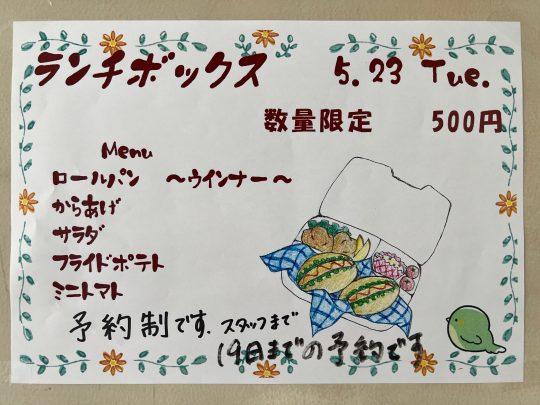 ランチボックス 5.23 Tue.
数量限定 500円
Menu
ロールパン ～ウインナー～
からあげ
サラダ
フライドポテト
ミニトマト
予約制です.スタッフまで
19日までの予約です